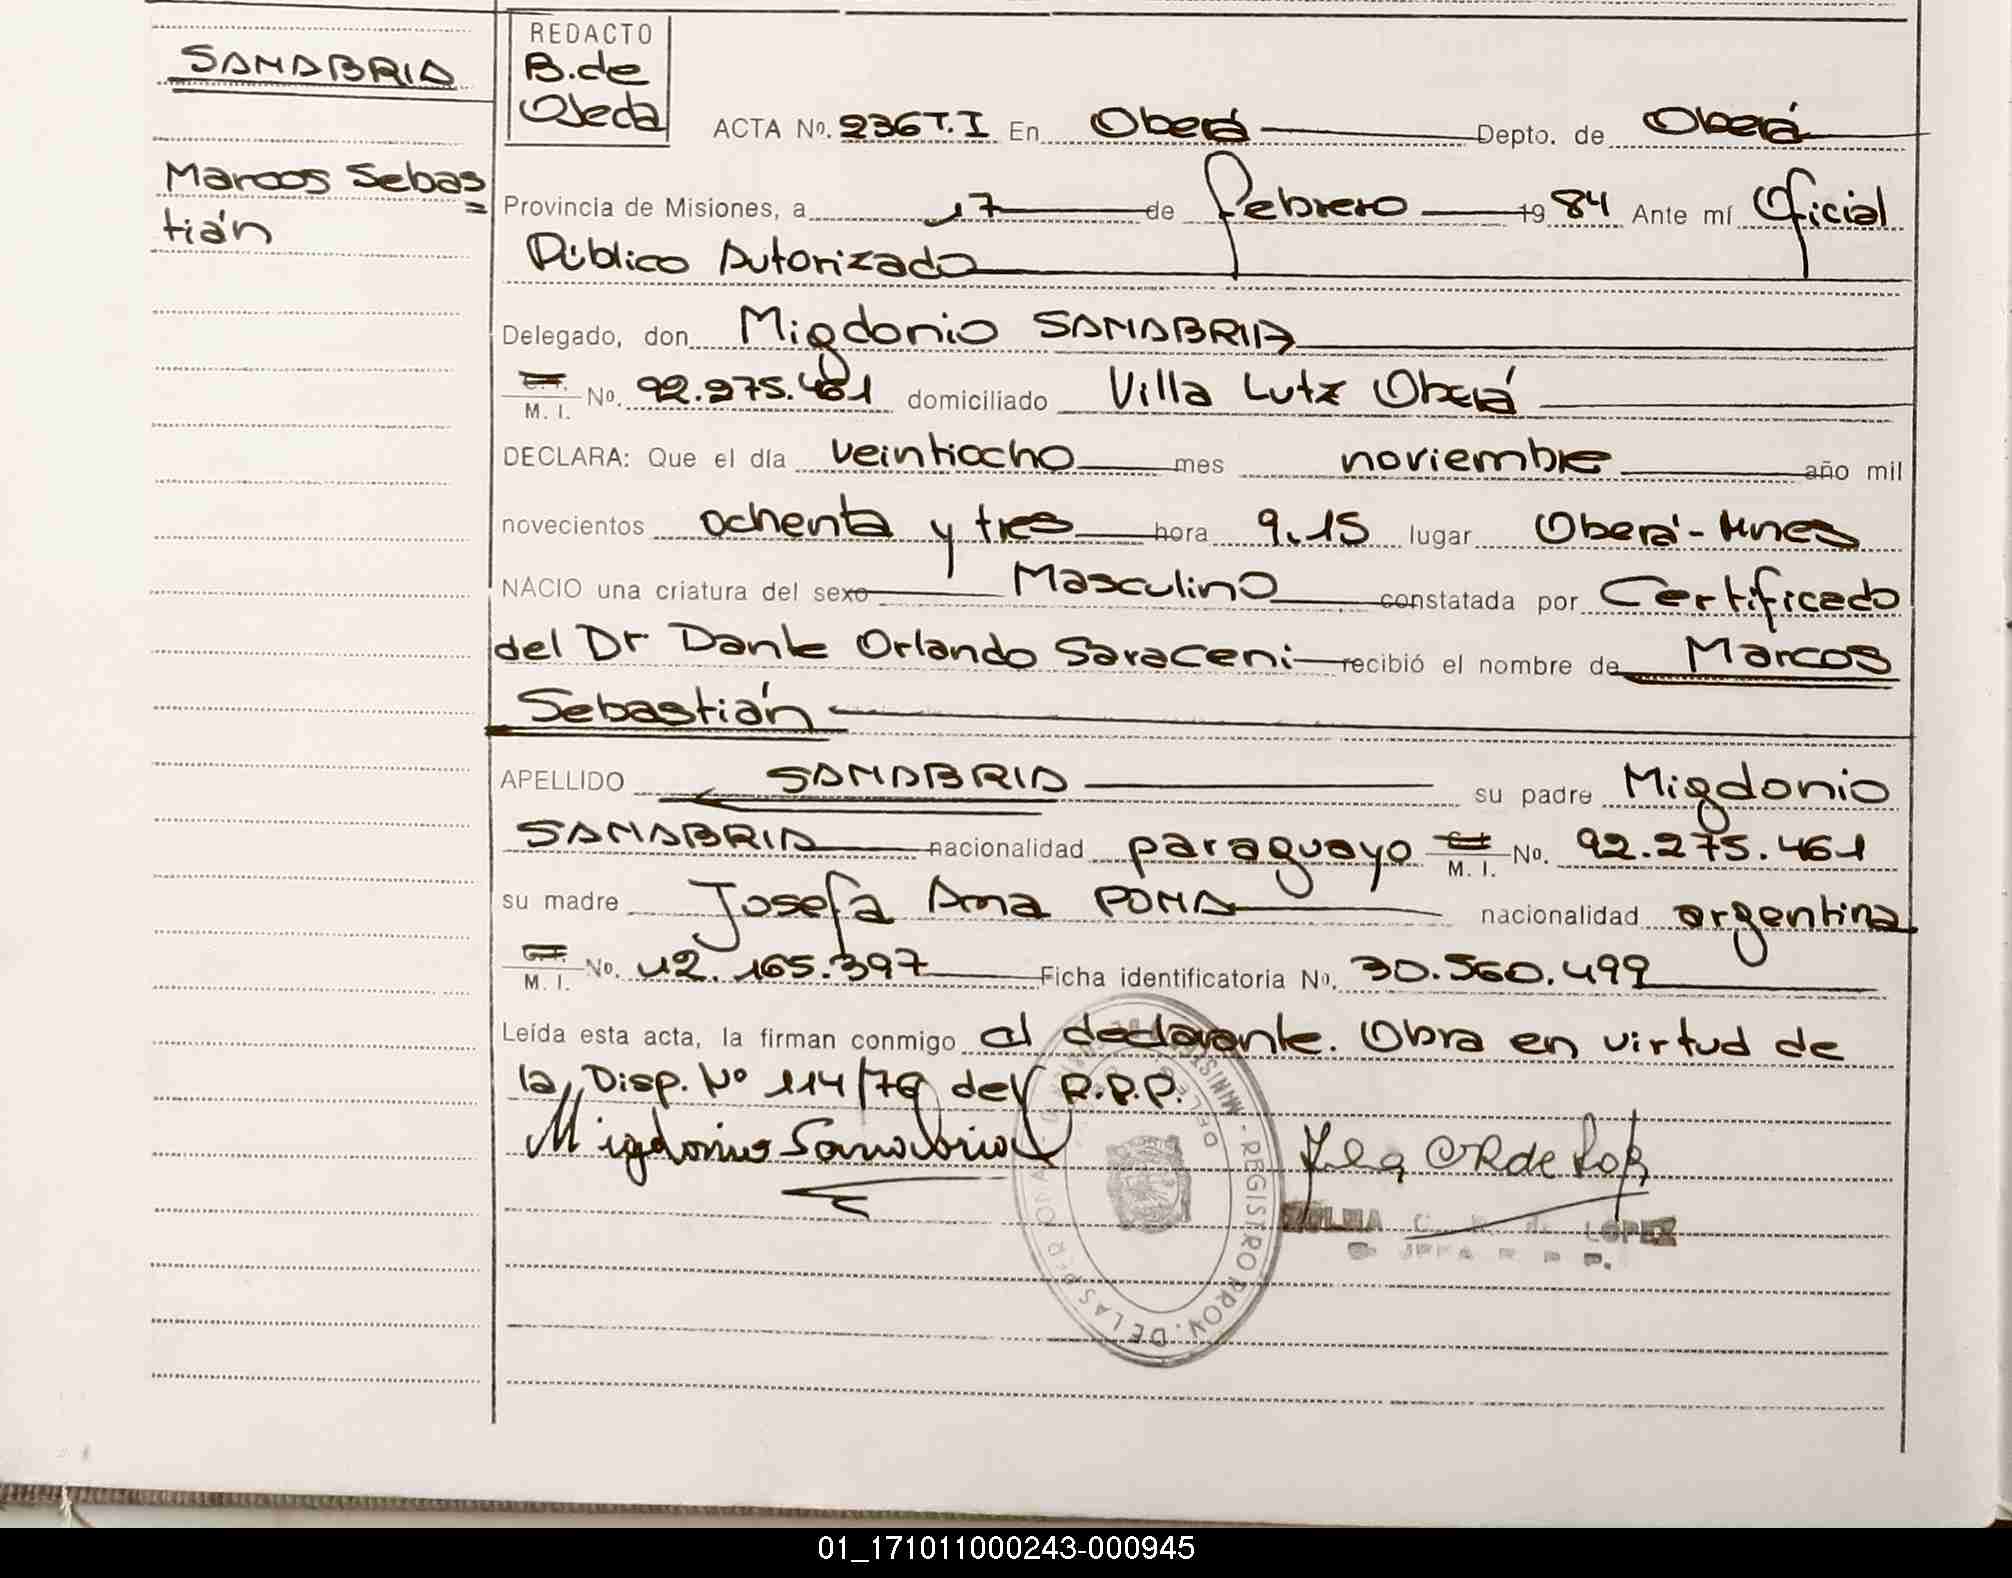 SANABRIA
Marcos Sebas
tián
REDACTO
B. de
Ojeda
ACTA No. 236 T.I En Oberá Depto. de Oberá
Provincia de Misiones, a 17 de febrero 1984 Ante mí Oficial
Público Autorizado
Delegado, don Migdonio SANABRIA
C.I. M. I. No. 92.275.461 domiciliado Villa Lutz Oberá
DECLARA: Que el día veintiocho mes noviembre año mil
novecientos ochenta y tres hora 9.15 lugar Oberá - Mnes
NACIO una criatura del sexo Masculino constatada por Certificado
del Dr Dante Orlando Saraceni recibió el nombre de Marcos
Sebastián
APELLIDO SANABRIA su padre Migdonio
SANABRIA nacionalidad paraguayo C.I. M. I. No. 92.275.461
su madre Josefa Ana POMA nacionalidad argentina
C.I. M. I. No. 12.165.397 Ficha identificatoria No. 30.560.499
Leída esta acta, la firman conmigo el declarante. Obra en virtud de
la Disp. Nº 114/76 del R.P.P.
Migdonio Sanabria
REGISTRO PROV. DE LAS PERSONAS
ZULMA C. R. de LOPEZ
JEFA R. P. P.
01_171011000243-000945